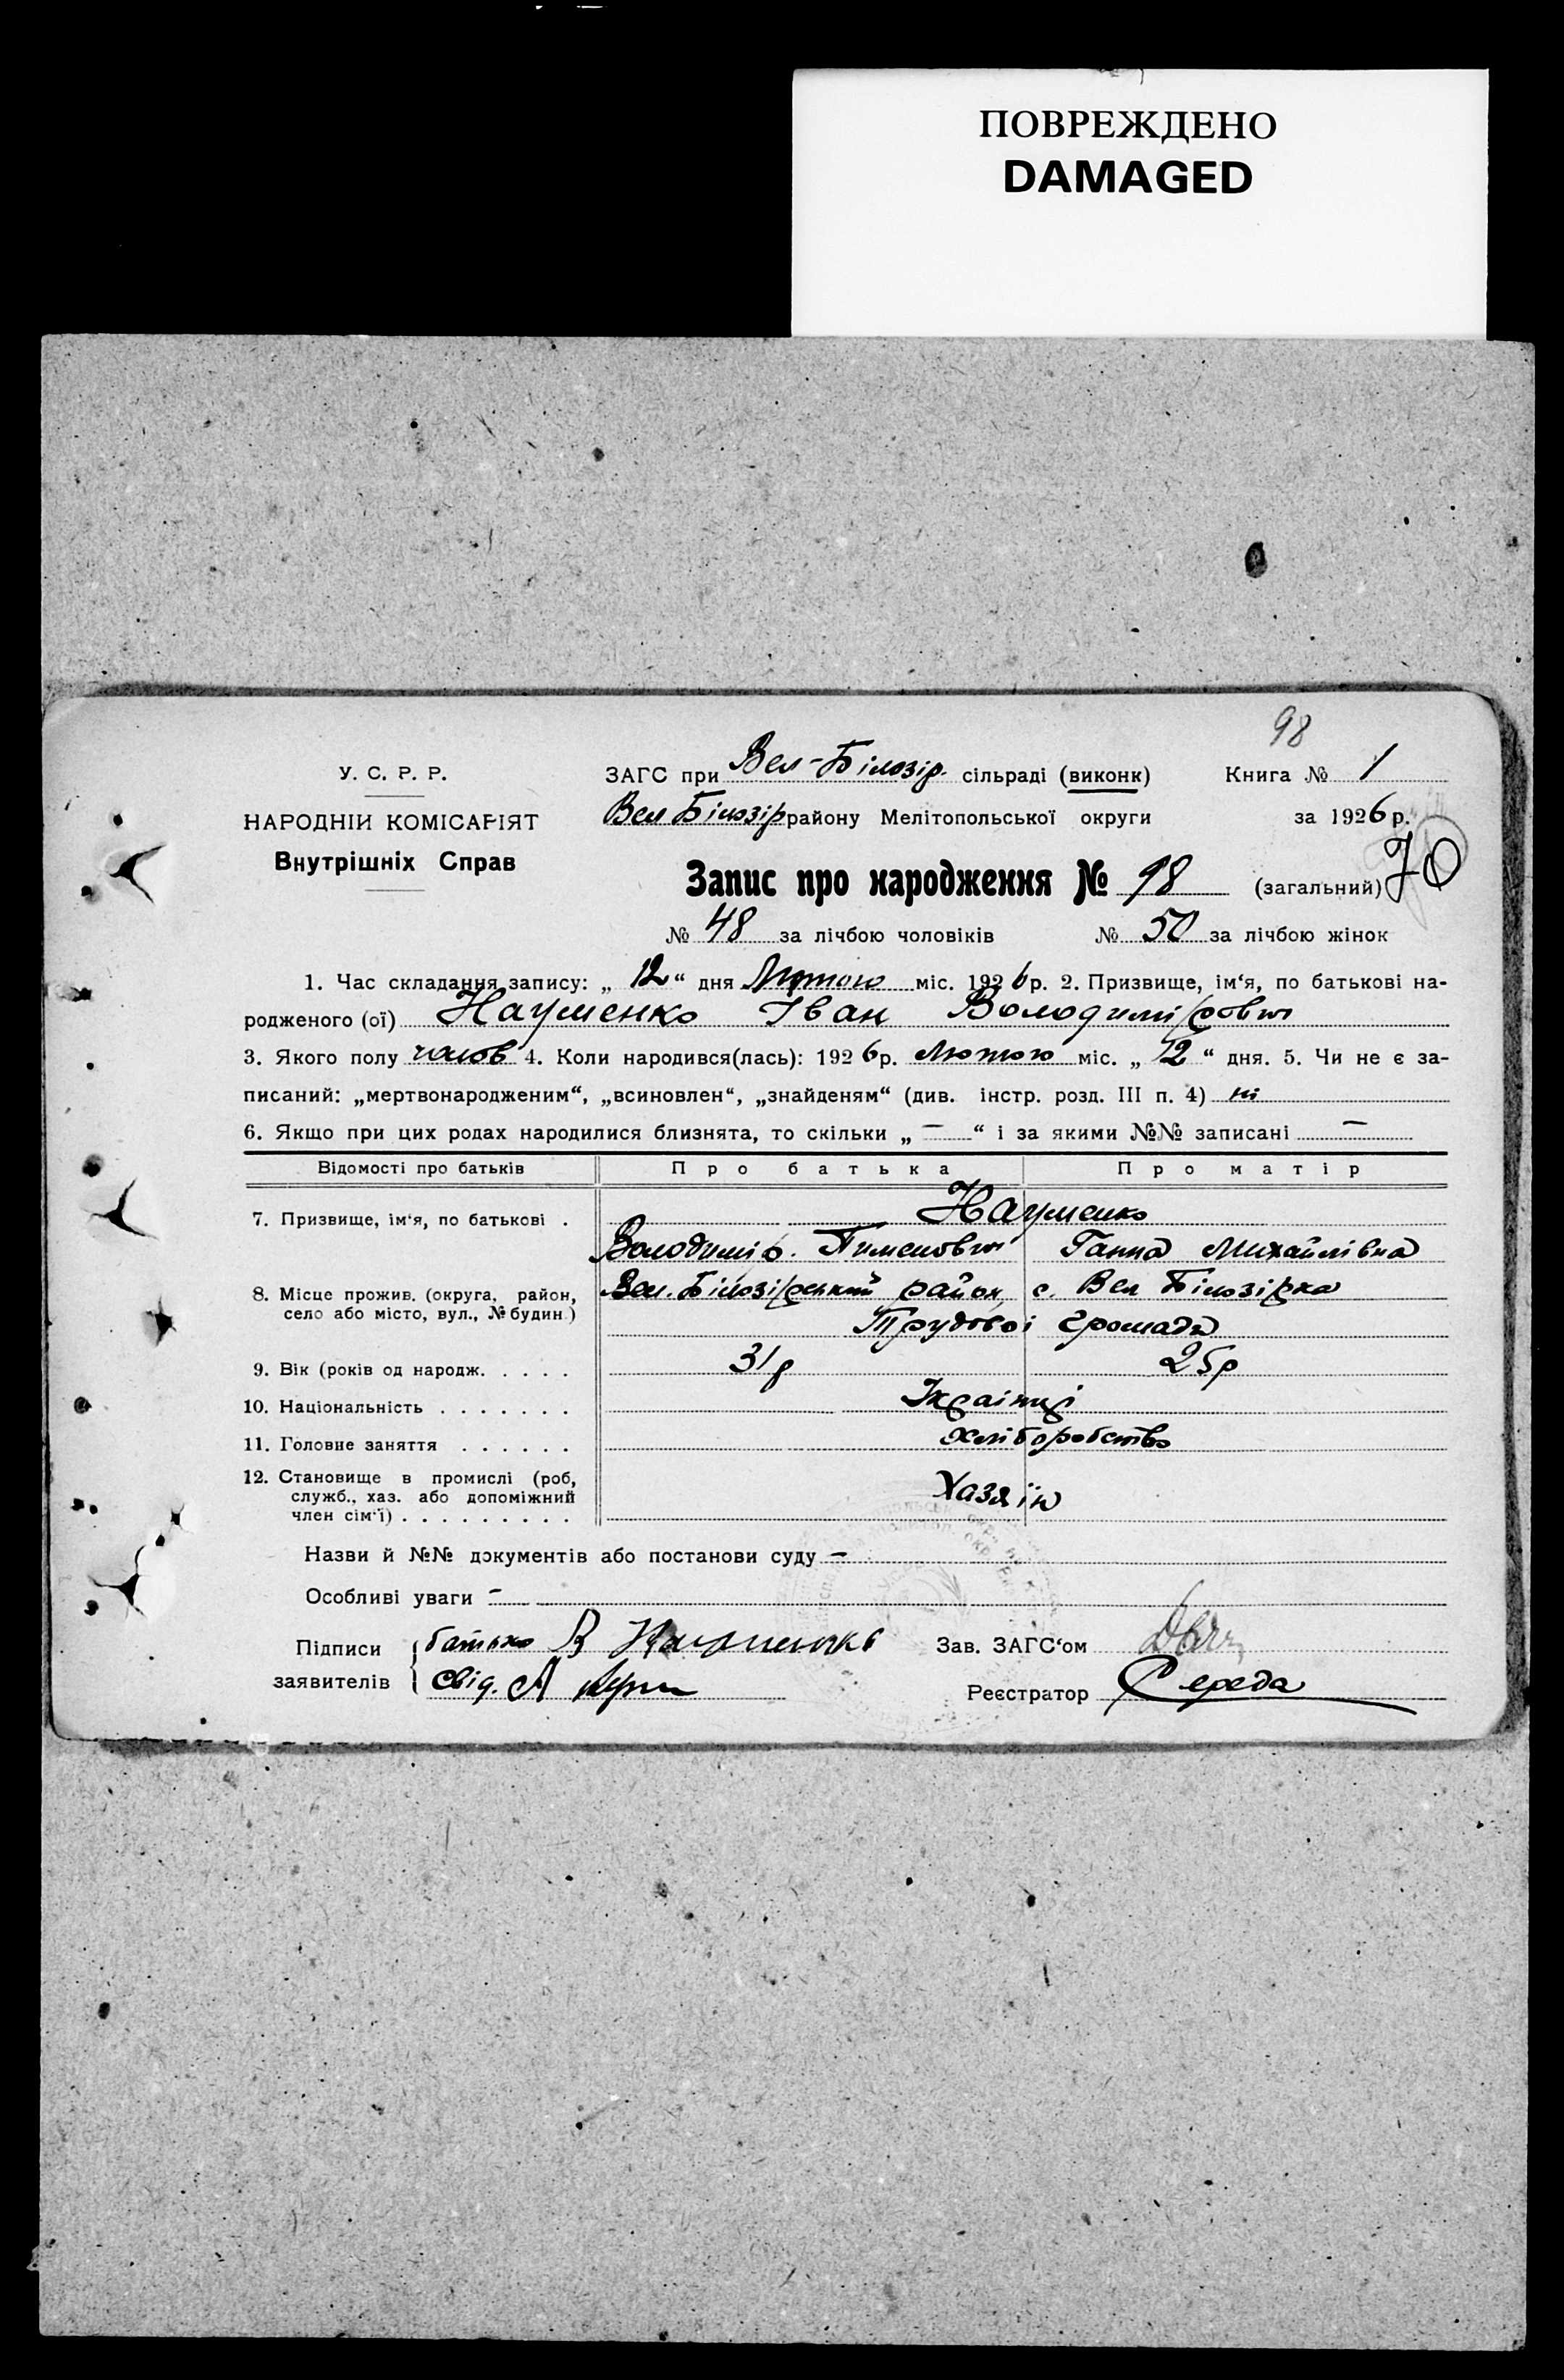 ПОВРЕЖДЕНО
DAMAGED
98
У. С. Р. Р.
НАРОДНІЙ КОМІСАРІЯТ
Внутрішніх Справ
ЗАГС при Вел-Білозір. сільраді (виконк) Книга № 1
Вел Білозір району Мелітопольської округи за 1926 р.
Запис про народження № 98 (загальний) 70
№ 48 за лічбою чоловіків № 50 за лічбою жінок
1. Час складання запису: „ 12 “ дня Лютого міс. 1926 р. 2. Призвище, ім‘я, по батькові на-
родженого (ої) Науменко Іван Володимірович
3. Якого полу чолов 4. Коли народився(лась): 1926 р. Лютого міс. „ 12 “ дня. 5. Чи не є за-
писаний: „мертвонародженим“, „всиновлен“, „знайденям“ (див. інстр. розд. III п. 4) ні
6. Якщо при цих родах народилися близнята, то скільки „ — “ і за якими №№ записані —
Відомості про батьків Про батька Про матір
7. Призвище, ім‘я, по батькові . Науменко
Володимір. Пименович Ганна Михайлівна
8. Місце прожив. (округа, район, село або місто, вул., № будин.) Вел. Білозірський район, с. Вел Білозірка
Трудової громади
9. Вік (років од народж. . . . . 31 р 25 р
10. Національність . . . . . . . Українці
11. Головне заняття . . . . . . хліборобство
12. Становище в промислі (роб,
служб., хаз. або допоміжний
член сім‘ї) . . . . . . . . . Хазяїн
Назви й №№ документів або постанови суду —
Особливі уваги —
Підписи батько В Науменко Зав. ЗАГС‘ом
заявителів свід. А Реєстратор Середа